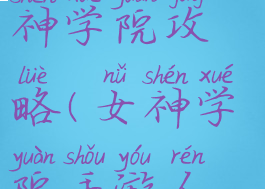 shén xué yuàn gōng
神学院攻
lüè nǚ shén xué
略(女神学
yuàn shǒu yóu rén
院手游人